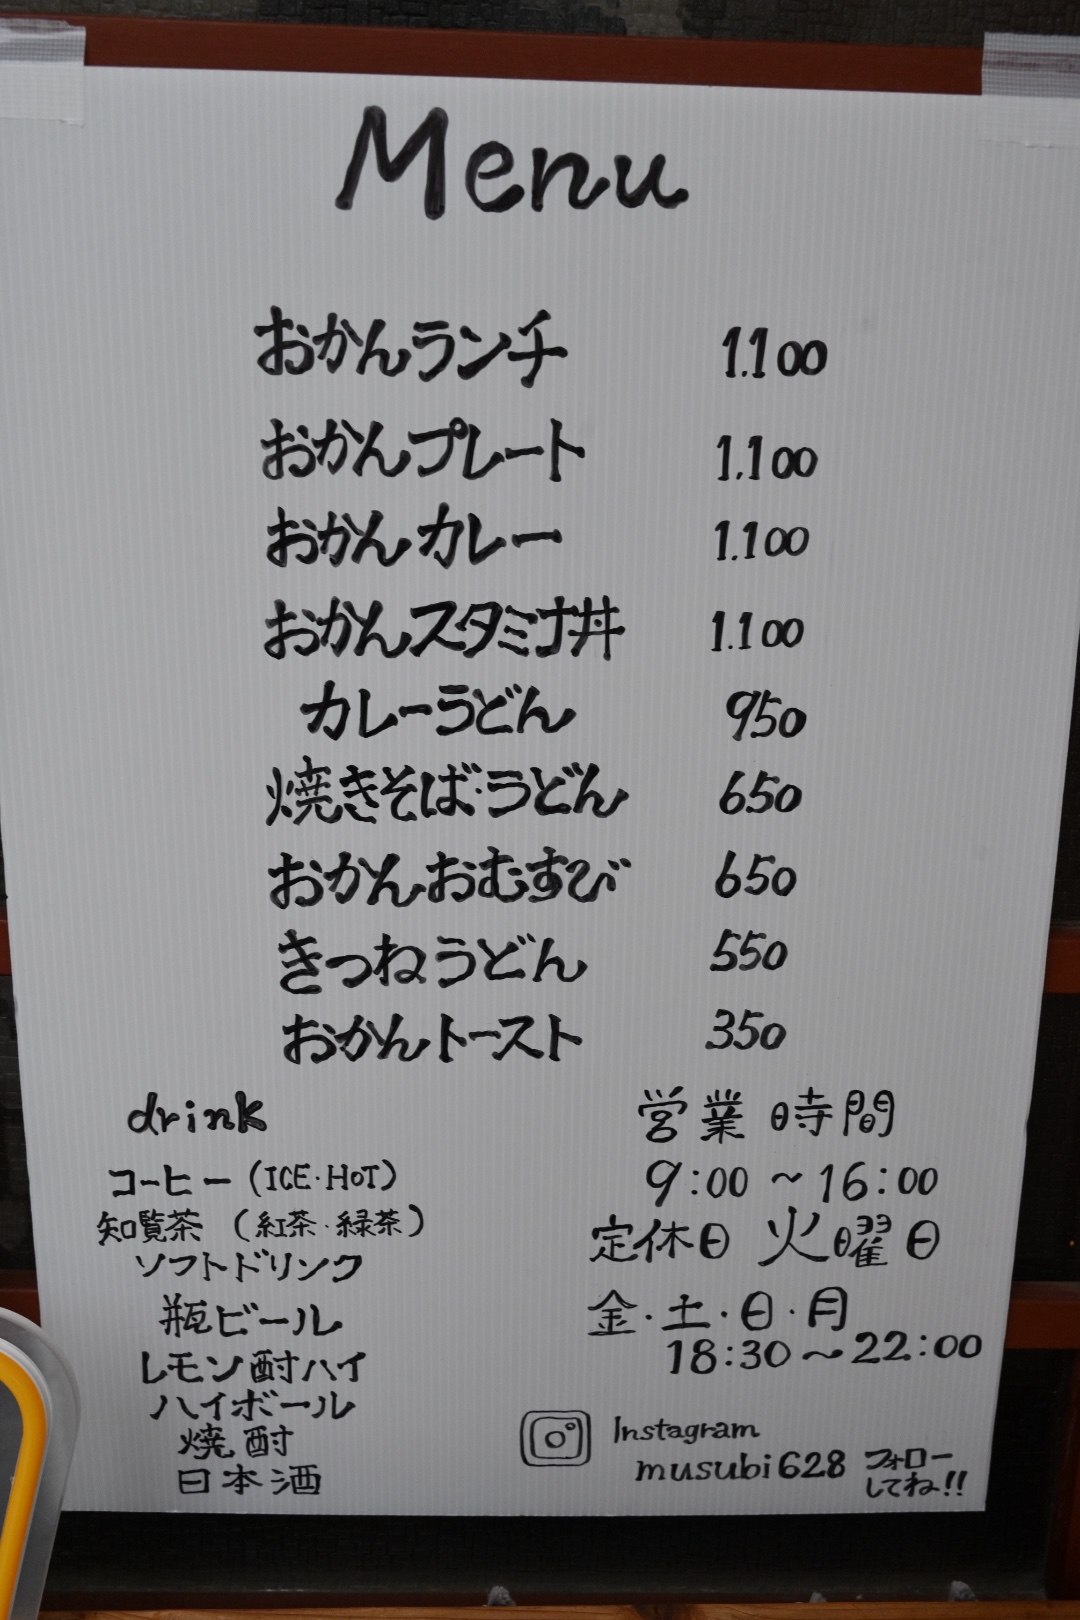 Menu
おかんランチ 1.100
おかんプレート 1,100
おかんカレー 1.100
おかんスタミナ丼 1.100
カレーうどん 950
焼きそば・うどん 650
おかんおむすび 650
きつねうどん 550
おかんトースト 350
drink
コーヒー (ICE・HOT)
知覧茶 (紅茶・緑茶)
ソフトドリンク
瓶ビール
レモン酎ハイ
ハイボール
焼酎
日本酒
営業時間
9:00 ~ 16:00
定休日 火曜日
金・土・日・月
18:30 ~ 22:00
Instagram
musubi628 フォロー
してね!!